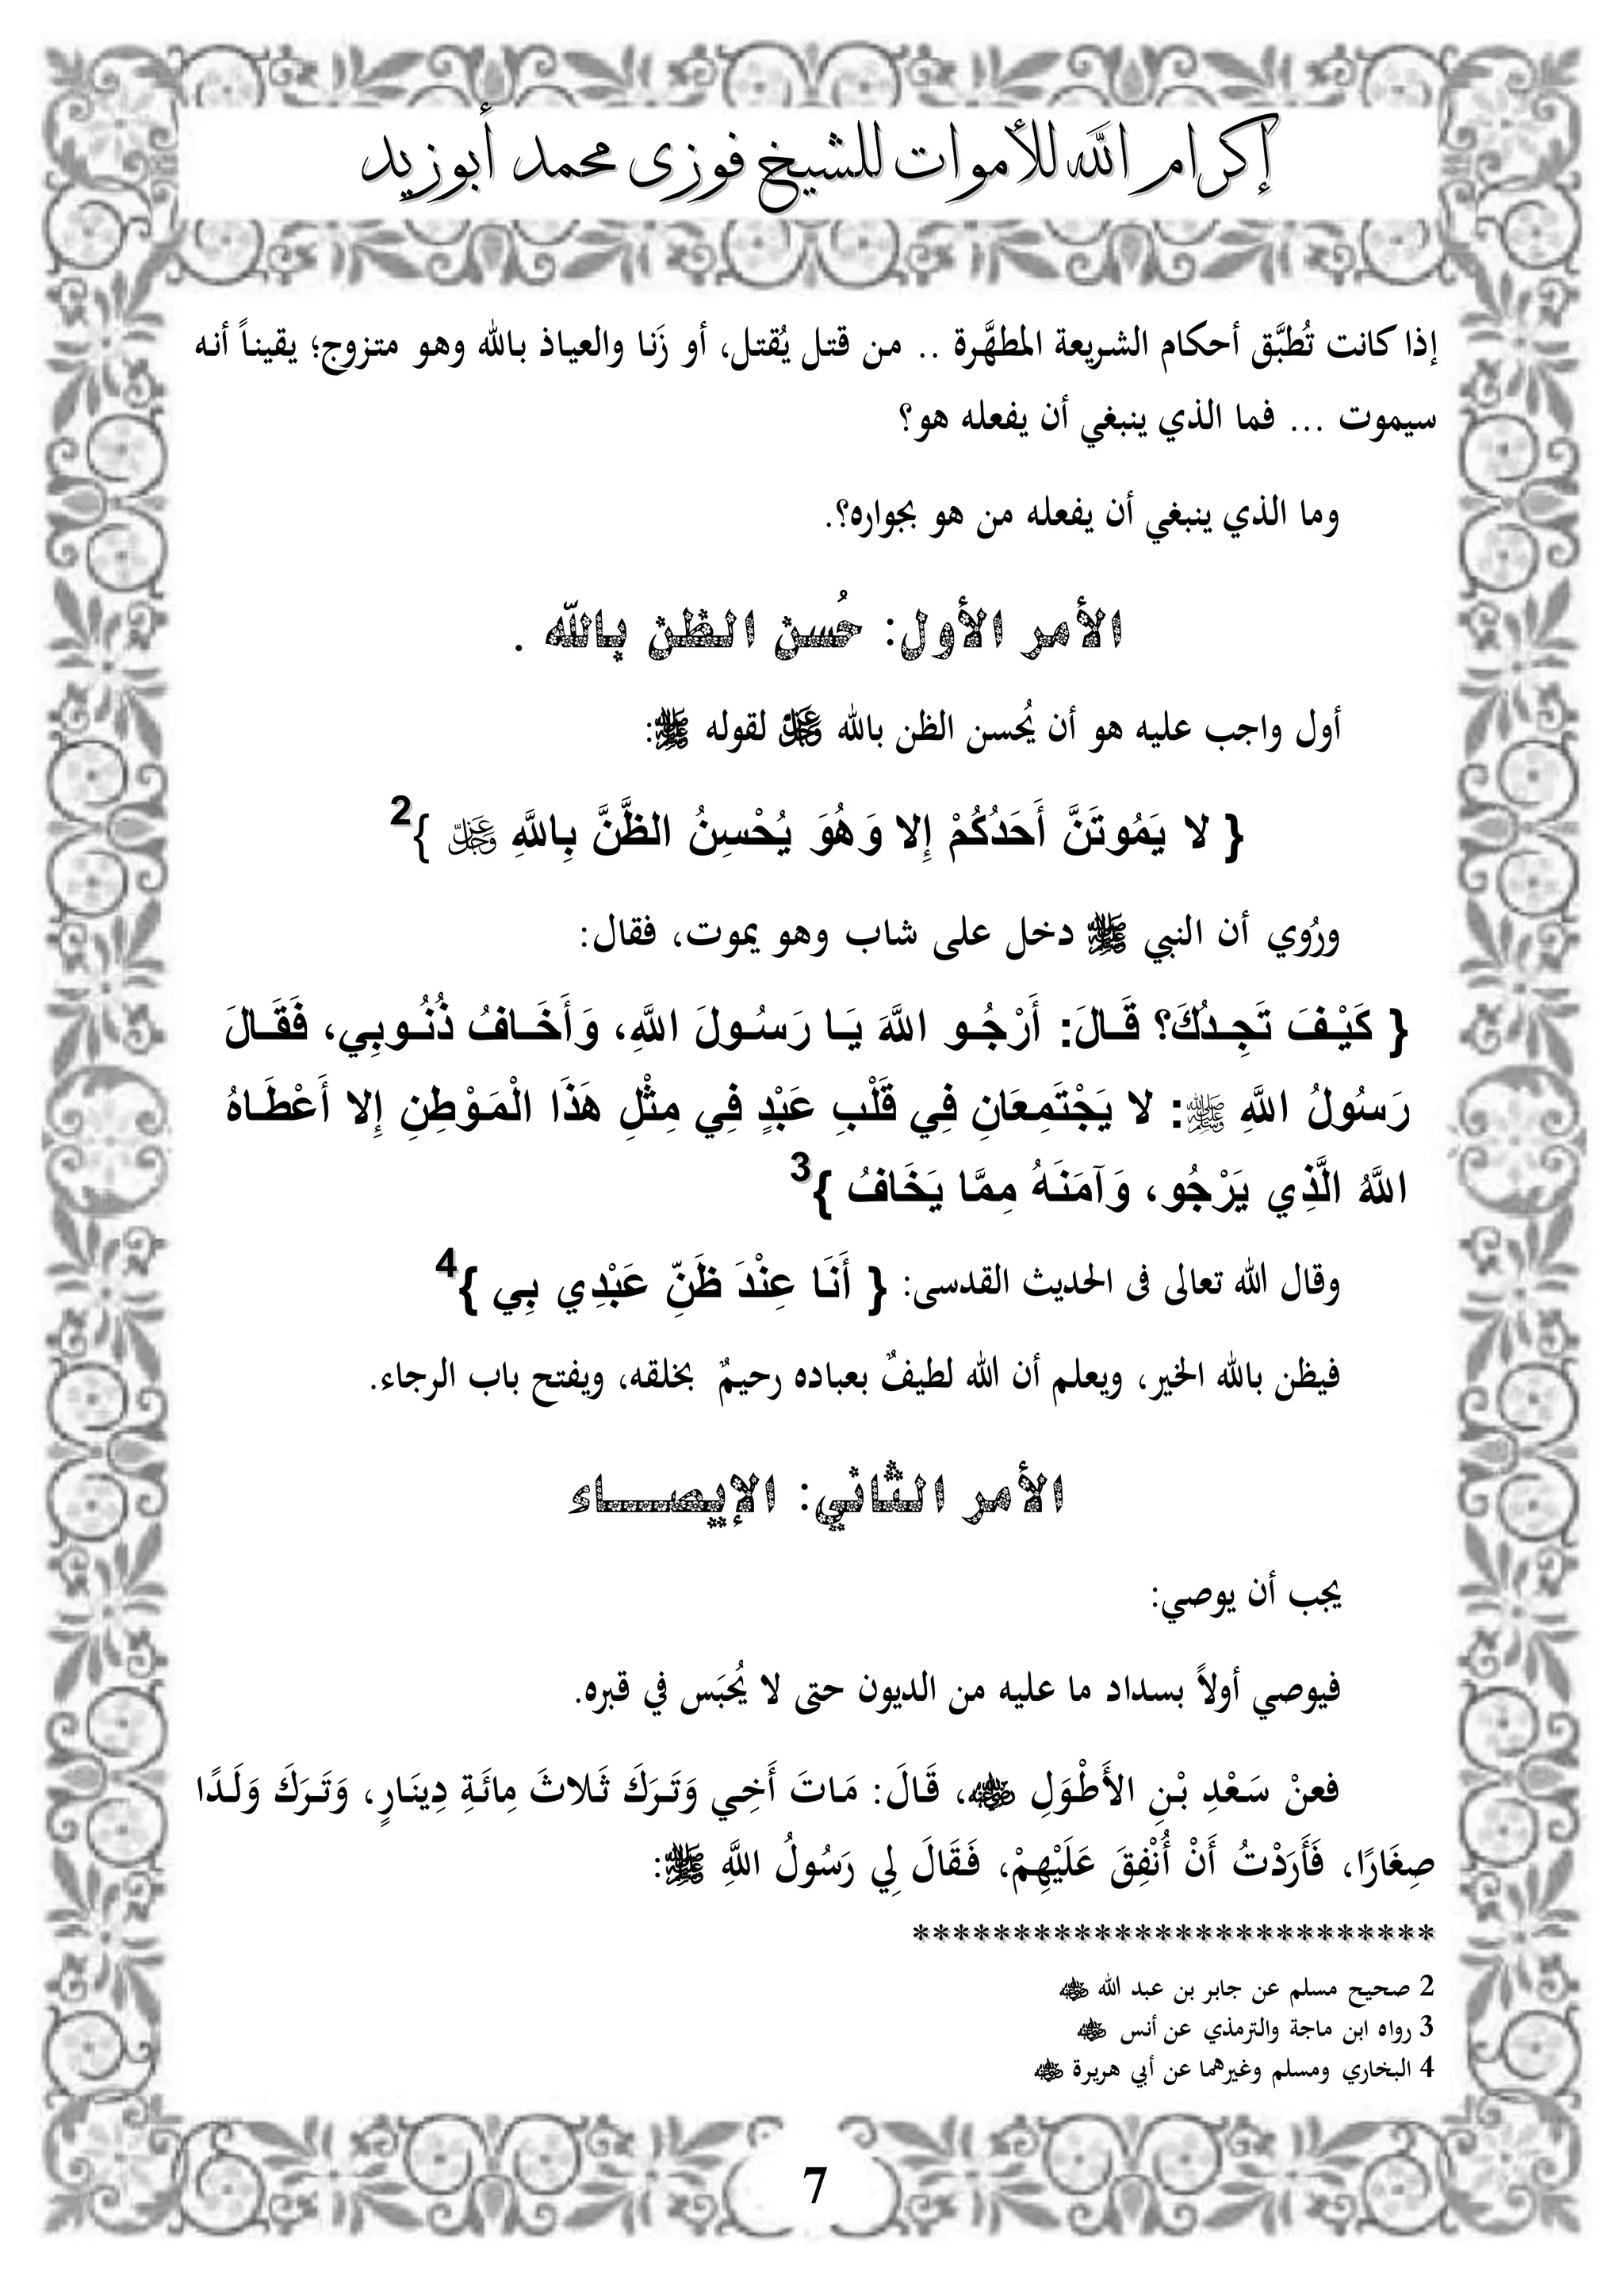 إكرام الله للأموات للشيخ فوزى محمد أبوزيد
إذا كانت تُطبَّق أحكام الشريعة المطهَّرة .. من قتل يُقتل، أو زَنا والعياذ بالله وهو متزوج؛ يقيناً أنه
سيموت ... فما الذي ينبغي أن يفعله هو؟
وما الذي ينبغي أن يفعله من هو بجواره؟.
الأمر الأول: حُسن الظن بالله .
أول واجب عليه هو أن يُحسن الظن بالله عز وجل لقوله ﷺ:
{ لا يَمُوتَنَّ أَحَدُكُمْ إِلا وَهُوَ يُحْسِنُ الظَّنَّ بِاللَّهِ عز وجل }2
ورُوي أن النبي ﷺ دخل على شاب وهو يموت، فقال:
{ كَيْفَ تَجِدُكَ؟ قَالَ: أَرْجُو اللَّهَ يَا رَسُولَ اللَّهِ، وَأَخَافُ ذُنُوبِي، فَقَالَ
رَسُولُ اللَّهِ ﷺ: لا يَجْتَمِعَانِ فِي قَلْبِ عَبْدٍ فِي مِثْلِ هَذَا الْمَوْطِنِ إِلا أَعْطَاهُ
اللَّهُ الَّذِي يَرْجُو، وَآمَنَهُ مِمَّا يَخَافُ }3
وقال الله تعالى فى الحديث القدسى: { أَنَا عِنْدَ ظَنِّ عَبْدِي بِي }4
فيظن بالله الخير، ويعلم أن الله لطيفٌ بعباده رحيمٌ بخلقه، ويفتح باب الرجاء.
الأمر الثاني: الإيصاء
يجب أن يوصي:
فيوصي أولاً بسداد ما عليه من الديون حتى لا يُحْبَس في قبره.
فعنْ سَعْدِ بْنِ الأَطْوَلِ رضي الله عنه، قَالَ: مَاتَ أَخِي وَتَرَكَ ثَلاثَ مِائَةِ دِينَارٍ، وَتَرَكَ وَلَدًا
صِغَارًا، فَأَرَدْتُ أَنْ أُنْفِقَ عَلَيْهِمْ، فَقَالَ لِي رَسُولُ اللَّهِ ﷺ:
**************************
2 صحيح مسلم عن جابر بن عبد الله رضي الله عنه
3 رواه ابن ماجة والترمذي عن أنس رضي الله عنه
4 البخاري ومسلم وغيرهما عن أبي هريرة رضي الله عنه
7